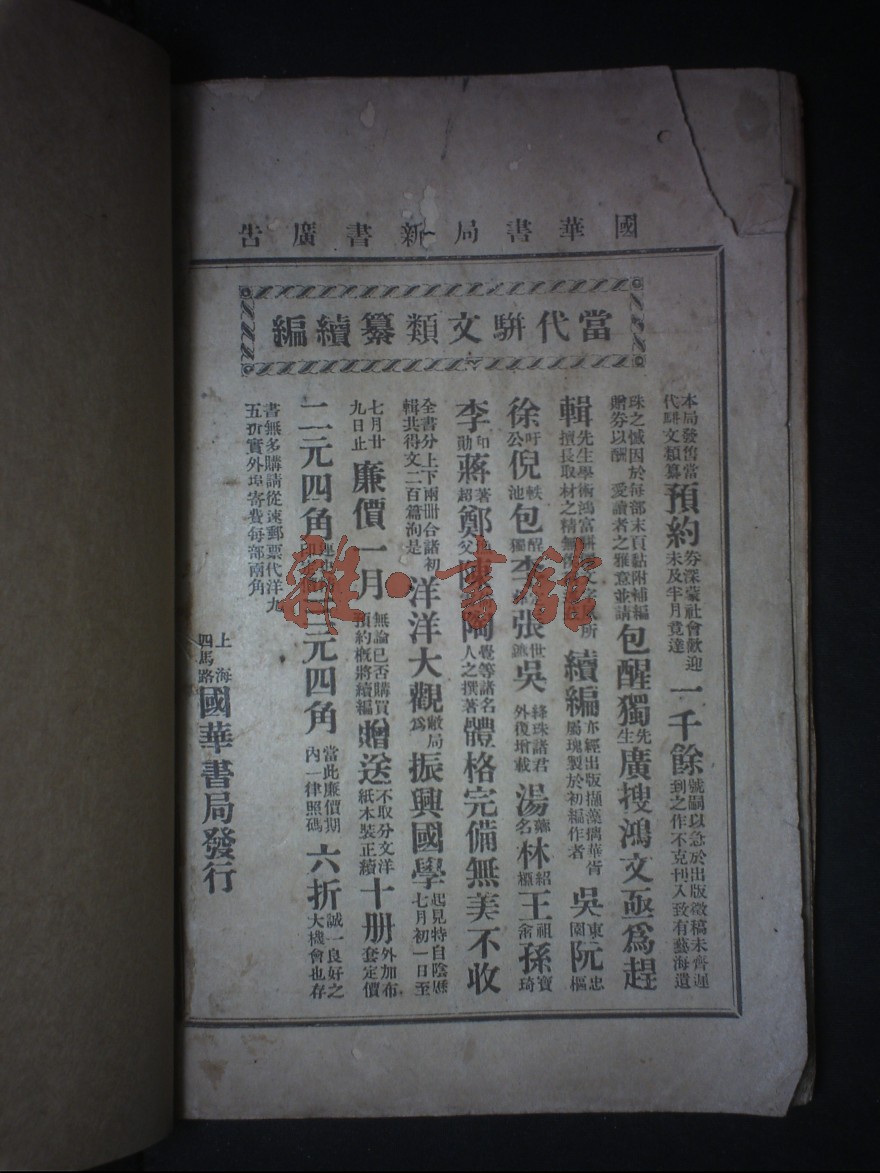 國華書局新書廣告
當代駢文類纂續編
本局發售當代駢文類纂預約券深蒙社會歡迎未及半月竟達一千餘號嗣以急於出版徵稿未齊遲到之作不克刊入致有藝海遺
珠之憾因於每部末頁黏附補編贈券以酬 愛讀者之雅意並請包醒獨先生廣搜鴻文亟爲趕
輯先生學術鴻富駢文字所擅長取材之精無續編亦經出版擷藻摛華胥屬瑰製於初編作者吳東園阮忠樞
徐吁公倪軼池包醒獨李張世鎏吳絳珠諸君外復增載湯名林紹王祖畬孫寶琦
李勛蔣著超鄭父陳陶覺等諸名人之撰著體格完備無美不收
全書分上下兩冊合諸初輯共得文二百篇洵是洋洋大觀敝局爲振興國學起見特自陰曆七月初一日至
七月廿九日止廉價一月無論已否購買預約概將續編贈送不取分文洋紙本裝正續十册外加布套定價
二元四角連史三元四角當此廉價期內一律照碼六折誠一良好之大機會也存
書無多購請從速郵票代洋九五折實外埠寄費每部兩角
上海四馬路國華書局發行
雜·書館